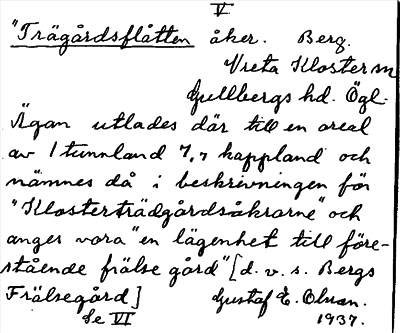 V
"Trägårdsflåtten åker. Berg.
Vreta Kloster sn
Gullbergs hd. Ögl.
Ägan utlades där till en areal
av 1 tunnland 7,7 kappland och
nämnes då i beskrivningen för
"Klosterträdgårdsåkrarne" och
anges vara "en lägenhet till före-
stående frälse gård" [d. v. s. Bergs
Frälsegård] Gustaf E. Olsson.
Se VI 1937.